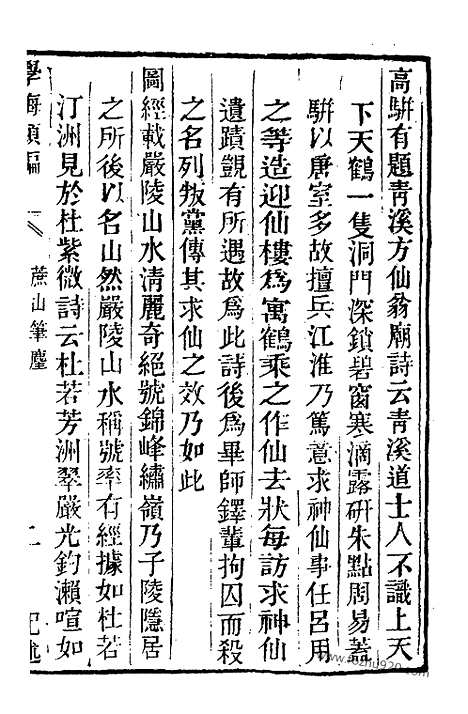 高駢有題青溪方仙翁廟詩云青溪道士人不識上天
下天鶴一隻洞門深鎖碧窗寒滴露研朱點周易蓋
駢以唐室多故擅兵江淮乃篤意求神仙事任呂用
之等造迎仙樓爲寓鶴乘之作仙去狀每訪求神仙
遺蹟覬有所遇故爲此詩後爲畢師鐸輩拘囚而殺
之名列叛黨傳其求仙之效乃如此
圖經載嚴陵山水清麗奇絕號錦峰繡嶺乃子陵隱居
之所後以名山然嚴陵山水稱號率有經據如杜若
汀洲見於杜紫微詩云杜若芳洲翠嚴光釣瀨喧如
學海類編
蔗山筆麈
二
記述